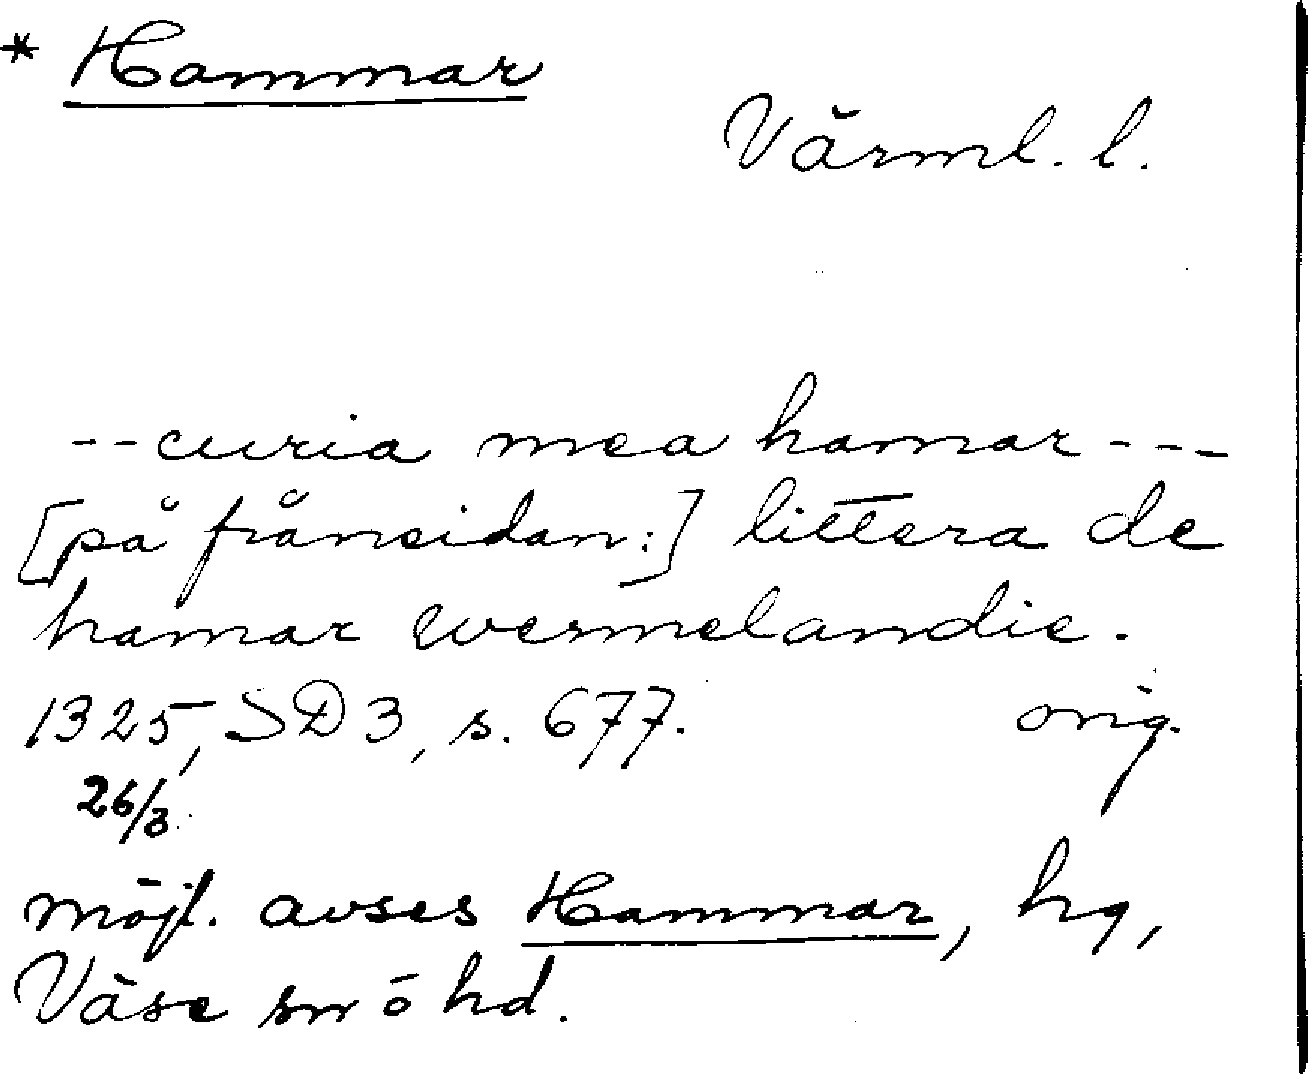 * Hammar
Värml. l.
-- curia mea hamar ---
[på frånsidan:] littera de
hamar wermelandie.
1325, SD 3, s. 677. orig.
26/3
möjl. avses Hammar, hg,
Väse sn o hd.